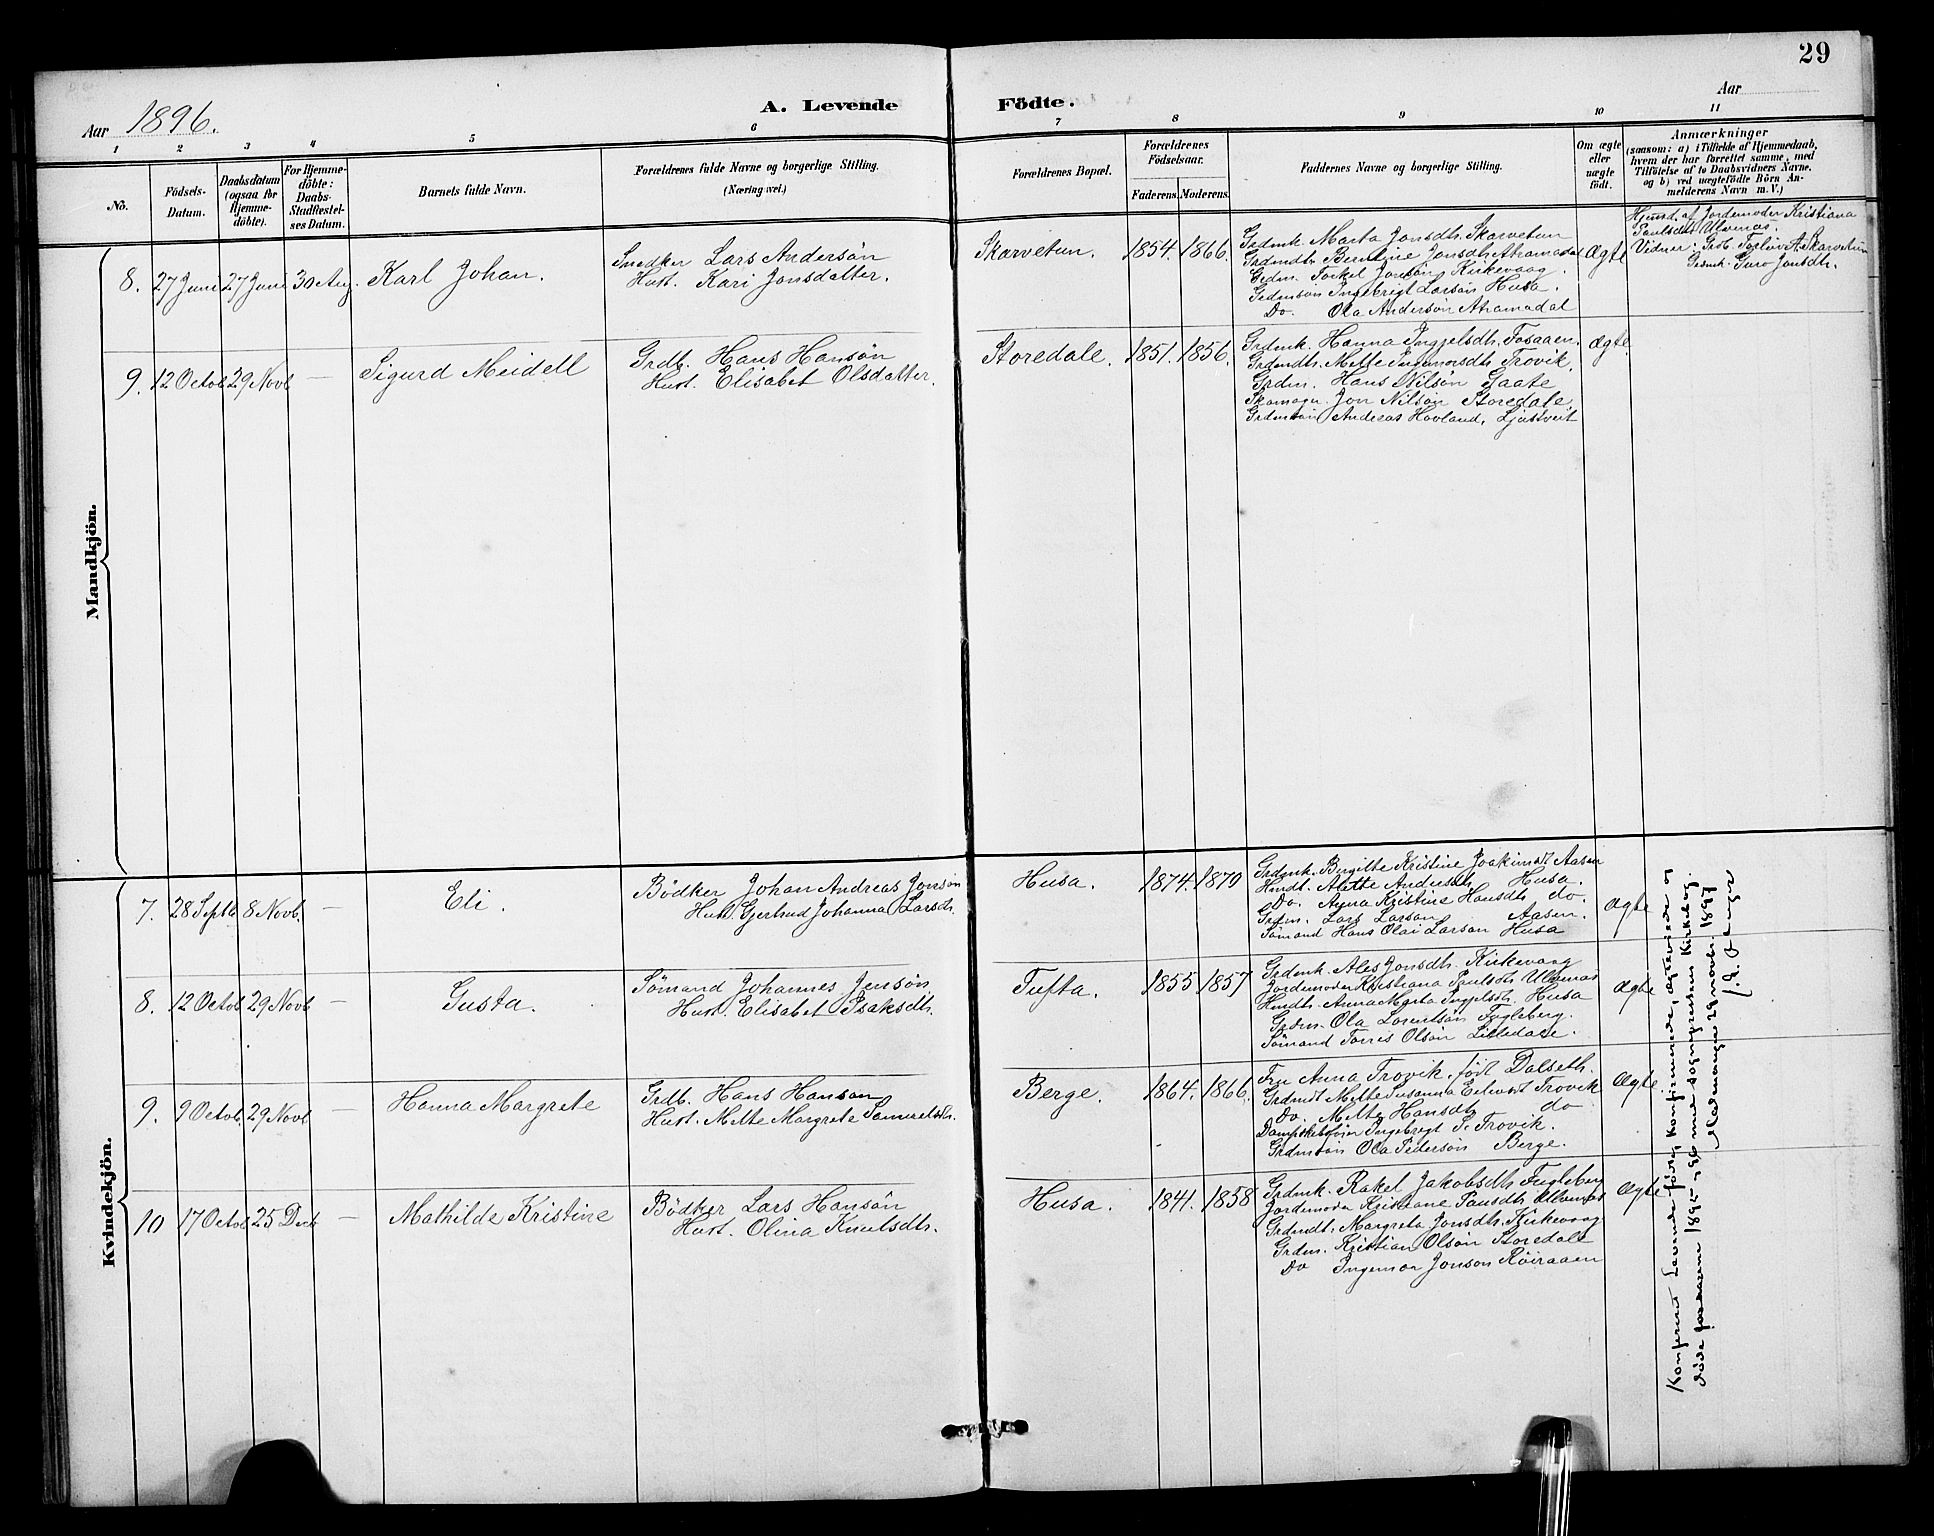 29
Aar 1896.
A. Levende Födte.
Aar
1 2 3 4 5 6 7 8 9 10 11
No.
Födsels-
Datum.
Daabsdatum
(ogsaa for
Hjemme-
döbte).
For Hjemme-
döbte:
Daabs-
Stadfæstel-
ses Datum.
Barnets fulde Navn.
Forældrenes fulde Navne og borgerlige Stilling.
(Næringsvei.)
Forældrenes Bopæl.
Forældrenes
Födselsaar.
Faderens. Moderens.
Faddernes Navne og borgerlige Stilling.
Om ægte
eller
uægte
födt.
Anmærkninger
(saasom: a) i Tilfælde af Hjemmedaab,
hvem der har forrettet samme, med
Tilföielse af to Daabsvidners Navne,
og b) ved uægtefödte Börn An-
melderens Navn m. V.)
Mandkjön.
8. 27 Juni 27 Juni 30 Aug. Karl Johan.
Snedker Lars Andersön
Hust. Kari Jonsdatter.
Skarvetun. 1854. 1866.
Grdmk. Marta Jonsdtr. Skarvetun
Grdmdtr. Berntine Jonsdtr. Atramadal
Grdm. Torkel Jonsöng Kirkevaag.
Grdmsön Ingebrigt Larsön Husa.
Do. Ola Andersön Atramadal
Ægte
Hjmd. af Jordemoder Kristiana
Paulsdtr Ulvenas.
Vidner: Grdb. Torlöv A. Skarvetun
Grdmk. Guro Jonsdtr.
9. 12 Octob 29 Novb — Sigurd Meidell
Grdb. Hans Hansön
Hust. Elisabet Olsdatter.
Storedale. 1851. 1856.
Grdmk. Hanna Ingjelsdtr. Fosaaen.
Grdmdtr. Mette Ingemorsdtr Trovik.
Grdm. Hans Nilsön Gaate
Skomagr. Jon Nilsön Storedale
Grdmsön Andreas Hovland, Ljustveit
Ægte
Kvindekjön.
7. 28 Septb 8 Novb. — Eli.
Bödker Johan Andreas Jonsön
Hust. Gjertrud Johanna Larsdtr.
Husa. 1874. 1879
Grdmk. Birgitte Kristine Joakimsdt Aasen
Hmdt. Alette Andersdtr Husa.
Do. Anna Kristine Hansdtr do.
Grdm. Lars Larson Aasen.
Sömand Hans Olai Larson Husa
Ægte
8. 12 Octob 29 Novb — Gusta.
Sömand Johannes Jensön
Hust. Elisabet Isaksdtr.
Tufta. 1855 1857
Grdmk. Ales Jonsdtr. Kirkevaag
Jordemoder Kristiana Paulsdtr Ulvenas
Hmdtr. Anna Marta Ingjelsdtr. Husa
Grdm. Ola Lorentsön Fugleberg.
Sömand Torris Olsön Lilledale.
Ægte
9. 9 Octob. 29 Novb — Hanna Margrete
Grdb. Hans Hanson
Hust. Mette Margrete Samuelsdtr.
Berge. 1864. 1866.
Fru Anna Trovik, födt Dalseth.
Grdmdt Mette Susanna Trovik
Do. Mette Hansdtr do
Ingebrigt S. Trovik.
Grdmsön Ola Pedersön Berge.
Ægte
10 17 Octob 25 Decb — Mathilde Kristine
Bödker Lars Hansön
Hust. Olina Knutsdtr.
Husa. 1841. 1858
Grdmk. Rakel Jakobsdtr Fugleberg
Jordemoder Kristiane Paulsdtr Ulvenas
Grdmdtr. Margreta Jonsdtr. Kirkevaag
Grdm. Kristian Olsön Storedale
Do Ingemar Jonson Röiraaen
Ægte
Konfereret Levende födte, konfirmerede, ægteviede og
döde for aarene 1895 og 96 med sogneprestens Kirkebog.
29 novbr. 1897